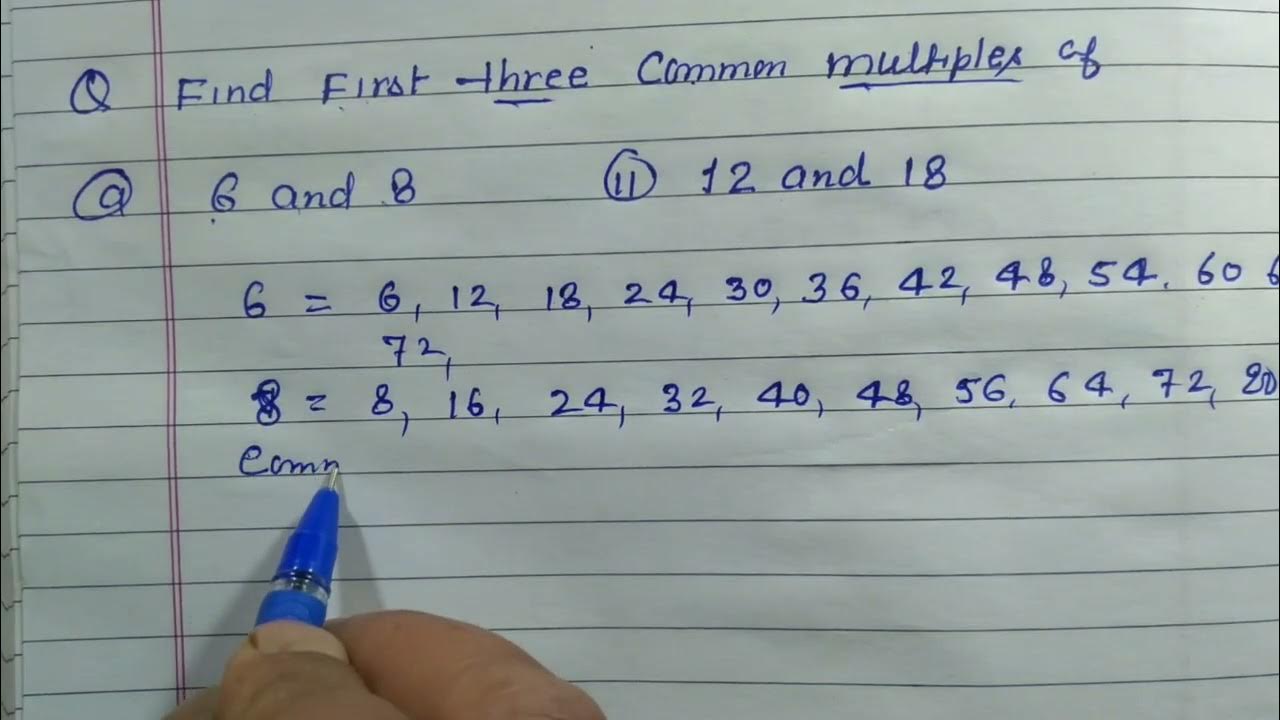 Q Find First three Common multiples of
a 6 and 8 11 12 and 18
6 = 6, 12, 18, 24, 30, 36, 42, 48, 54. 60 6
72,
8 = 8, 16, 24, 32, 40, 48, 56, 64, 72, 80
Comm